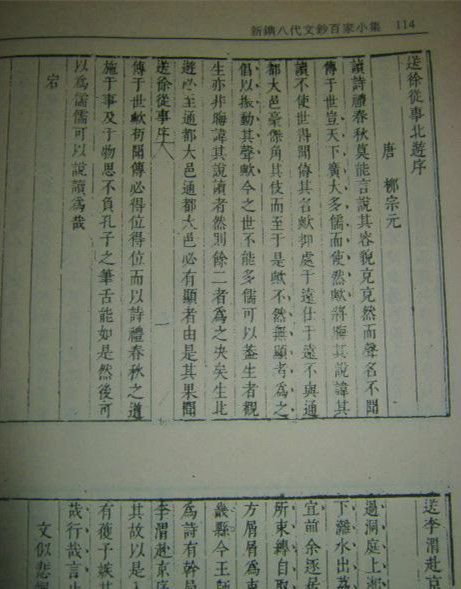 新鐫八代文鈔百家小集 114
送徐從事北遊序
唐 柳宗元
讀詩禮春秋莫能言說其容貌充充然而聲名不聞
傳于世豈天下廣大多儒而使然歟將晦其說諱其
讀不使世得聞傳其名歟抑處于遠仕于遠不與通
都大邑豪傑角其伎而至于是歟不然無顯者為之
倡以振動其聲歟今之世不能多儒可以蓋生者觀
生亦非晦諱其說讀者然則餘二者為之決矣生北
遊必至通都大邑通都大邑必有顯者由是其果聞
送徐從事序 一
傳于世歟苟聞傳必得位得位而以詩禮春秋之道
施于事及于物思不負孔子之筆舌能如是然後可
以為儒儒可以說讀為哉
宕
送李渭赴京
過洞庭上湘
下灕水出荔
宜前余逐居
所束縛自取
方屑屑為吏
畿縣今王師
為詩有幹局
李渭赴京序
其故以是入
有獲予嫉其
哉行哉言止
文似悲